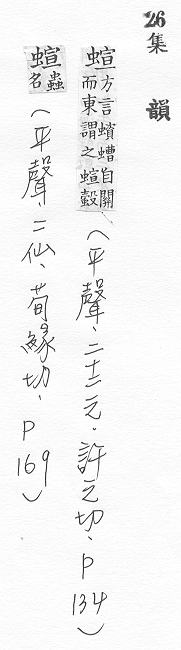 26集韻
蝖方言蠀螬自關而東謂之蝖𧎅（平聲、二十二元．許元切、P134）
蝖蟲名（平聲、二仙、荀緣切、P169）